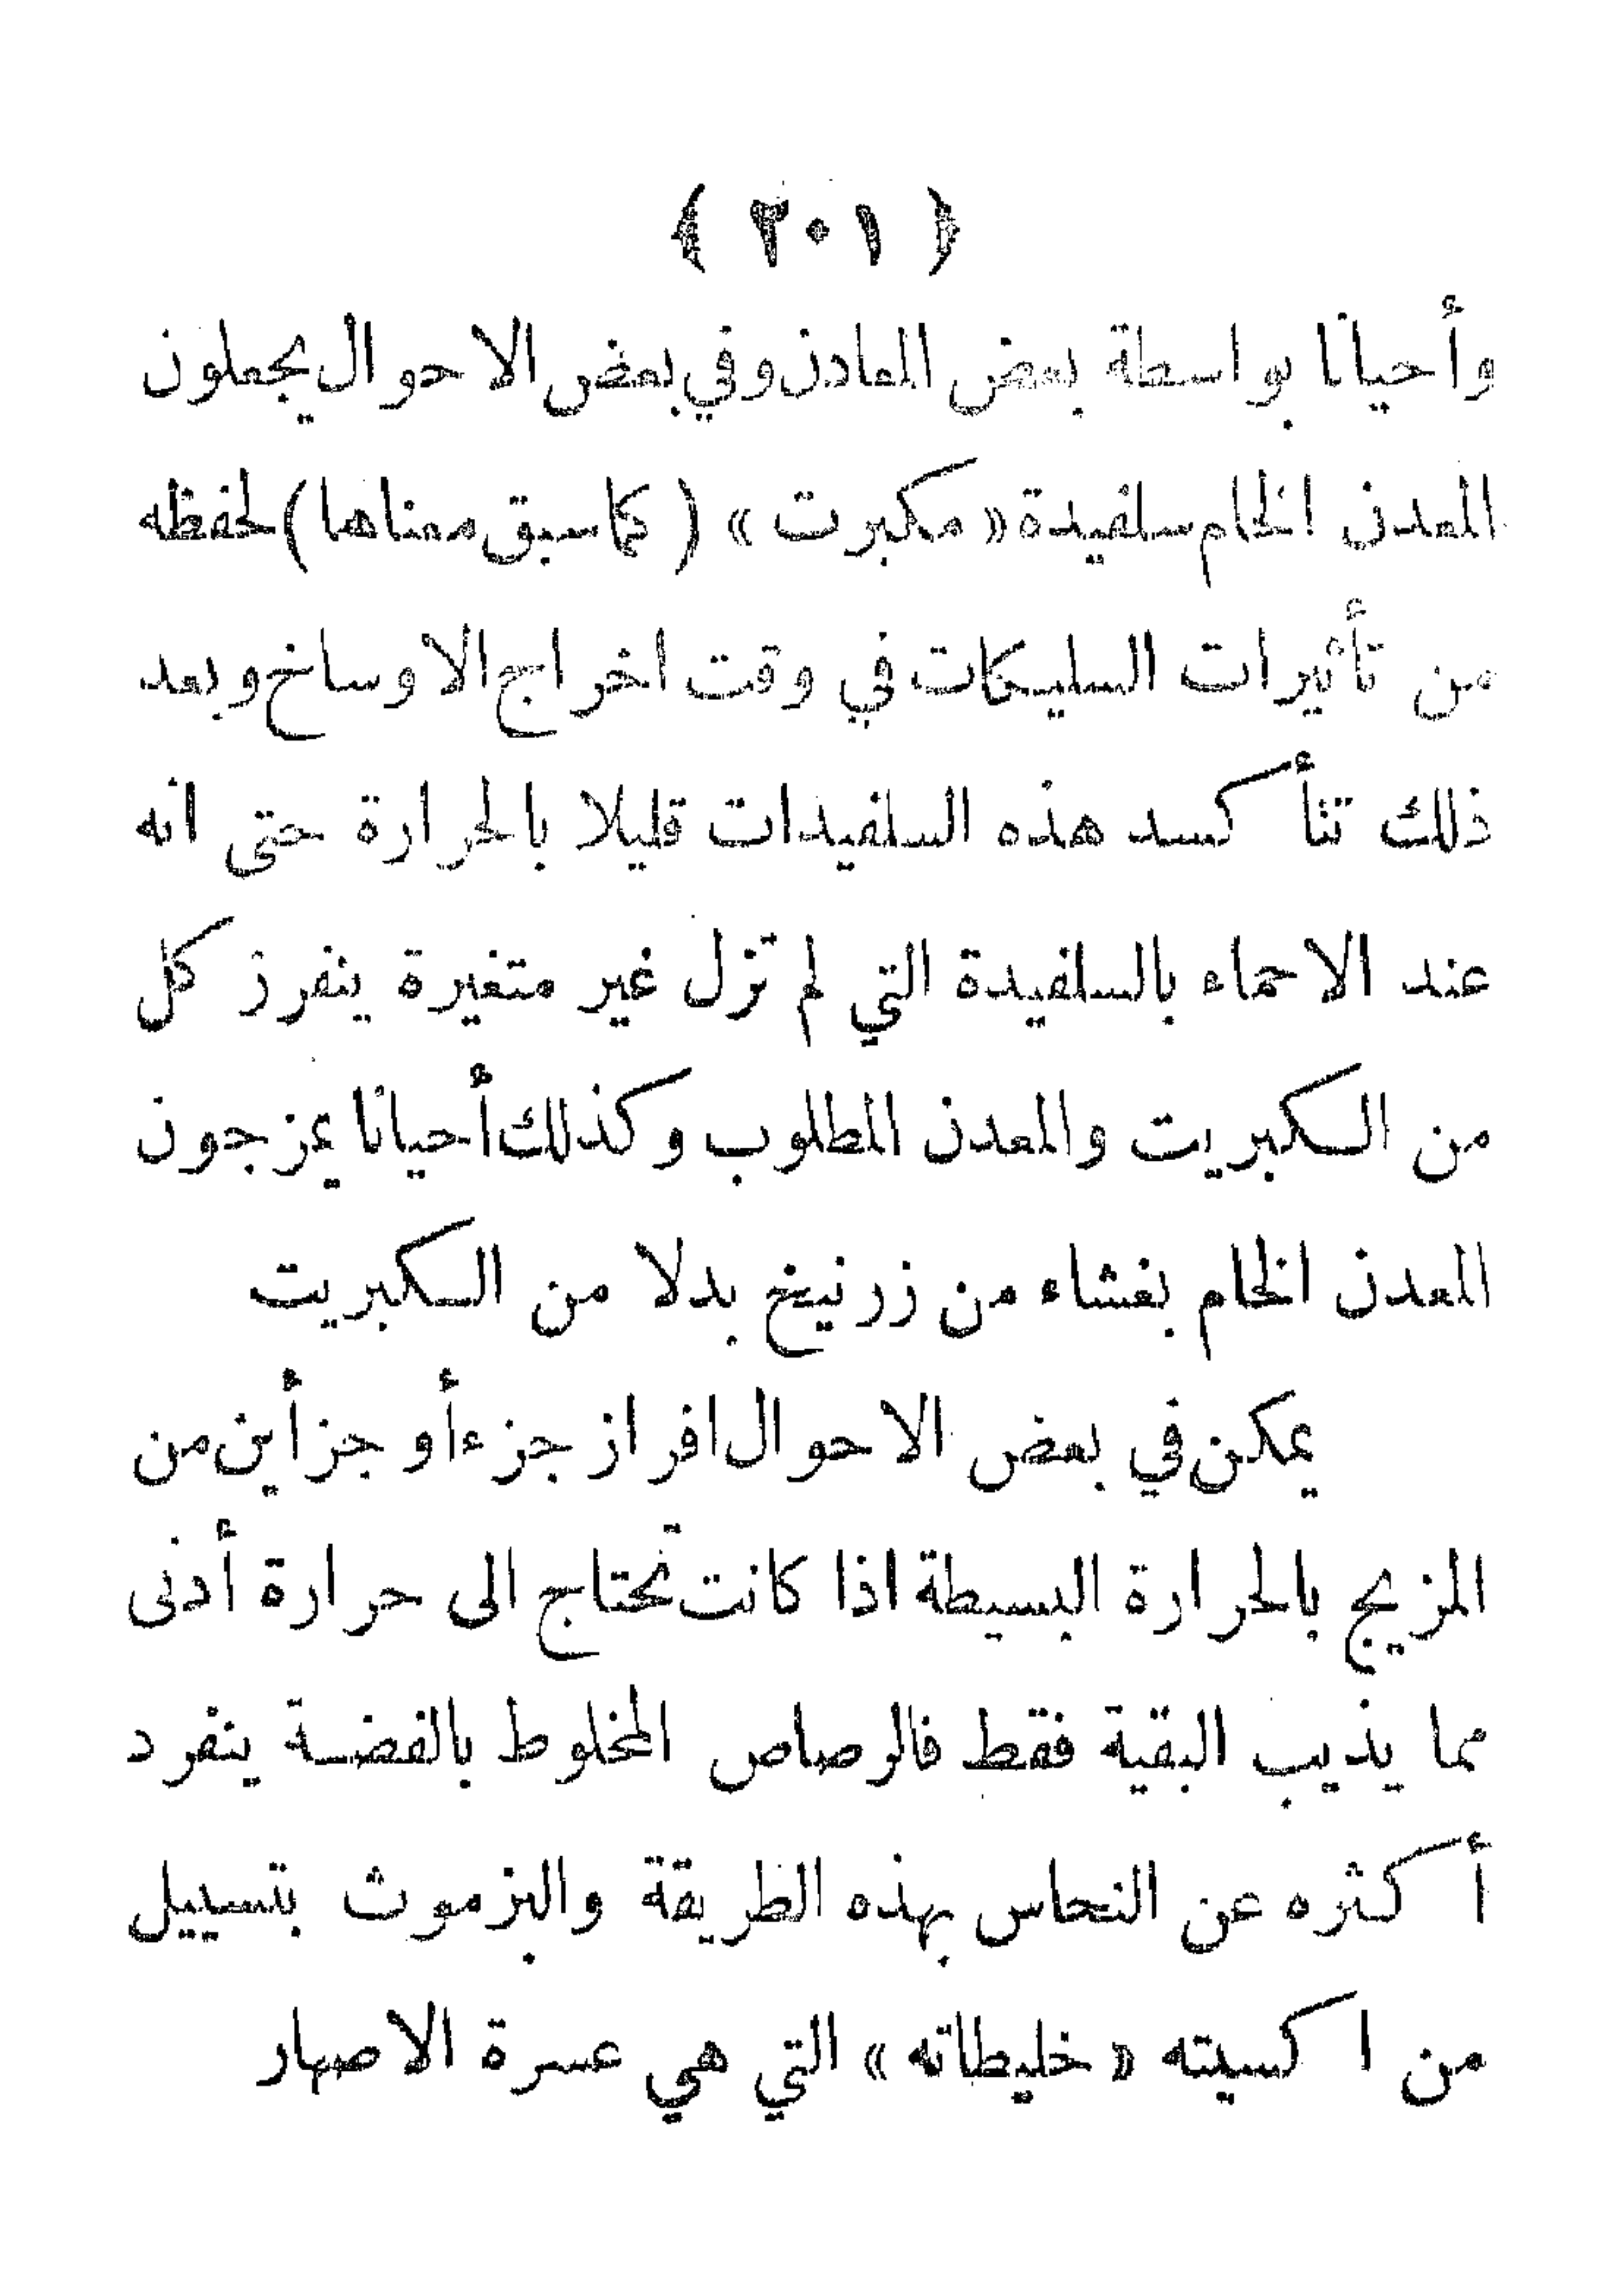 ﴿ ٢٠١ ﴾
وأحيانا بواسطة بعض المعادن وفي بعض الاحوال يجعلون
المعدن الخام سلفيدة «مكبرت» (كما سبق معناها) لحفظه
من تأثيرات السليكات في وقت اخراج الاوساخ وبعد
ذلك تتأكسد هذه السلفيدات قليلا بالحرارة حتى انه
عند الاحماء بالسلفيدة التي لم تزل غير متغيرة ينفرز كل
من الكبريت والمعدن المطلوب وكذلك أحيانا يمزجون
المعدن الخام بغشاء من زرنيخ بدلا من الكبريت
يمكن في بعض الاحوال افراز جزء أو جزأين من
المزيج بالحرارة البسيطة اذا كانت تحتاج الى حرارة أدنى
مما يذيب البقية فقط فالرصاص المخلوط بالفضة ينفرد
أكثره عن النحاس بهذه الطريقة والبزموث بتسييل
من اكسيته «خليطاته» التي هي عسرة الاصهار